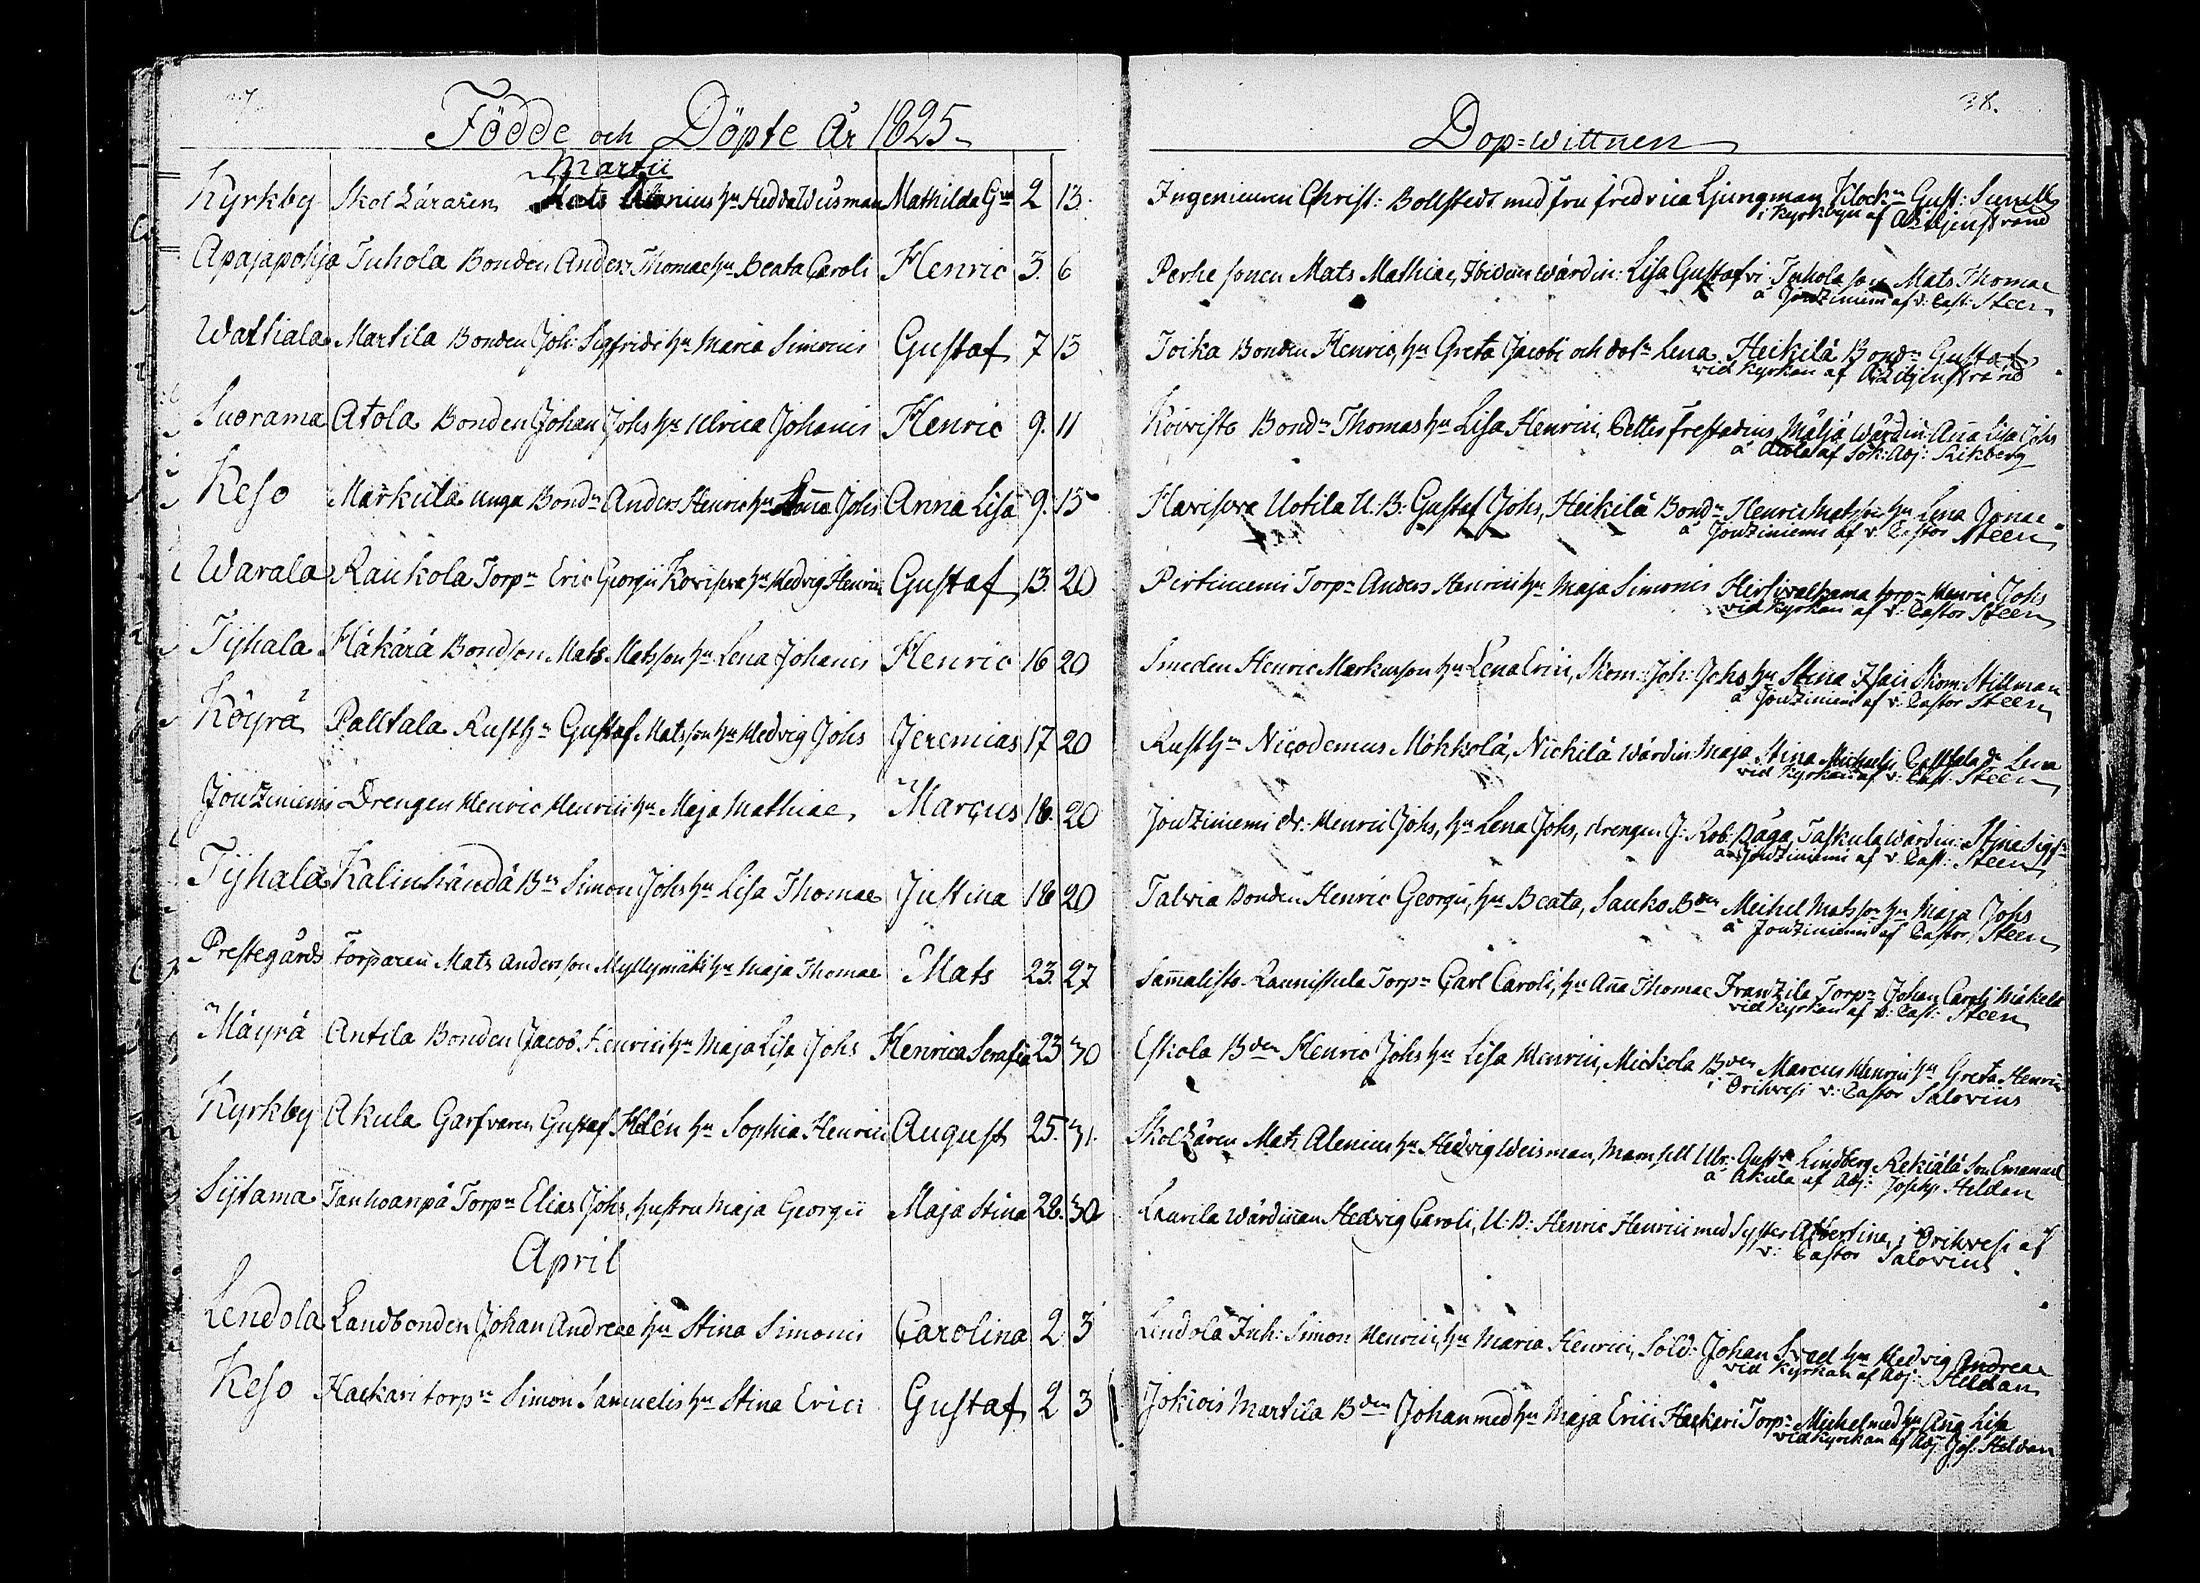 37
Födde och Döpte År 1825
Martii
Kyrkby Skol Läraren Mats Alenius hu Hedda Weisman Mathilda Gva 2 13.
Apajapohja Juhola Bonden Anders Thomae hu Beata Caroli Henric 3. 6
Wattiala Martila Bonden Joh: Sigfridi hu Maria Simonis Gustaf 7 13
Suorama Atola Bonden Johan Johs hu Ulrica Johanis Henric 9. 11
Keso Markula unga Bondn Anders Henric hu Anna Johs Anna Lisa 9. 15
Warala Raukola Torpn Eric Georgii Kovisera hu Hedvig Henrici Gustaf 13. 20
Tijhala Häkärä Bondson Mats Matsson hu Lena Johanis Henric 16 20
Köyrä Palttala Rusthn Gustaf Matsson hu Hedvig Johs Jeremias 17 20
Jouziniemi Drengen Henric Henrici hu Maja Mathiae Marcus 18. 20
Tijhala Kalinhändä Bn Simon Johs hu Lisa Thomae Justina 18 20
Prestegårds Torparen Mats Andersson Myllymäki hu Maja Thomae Mats 23. 27
Mäyrä Antila Bonden Jacob Henrici hu Maja Lisa Johs Henrica Serafia 23 30
Kyrkby Akula Garfvaren Gustaf Helén hu Sophia Henrici August 25. 31.
Sijtama Janhoanpä Torpn Elias Johs, hustru Maja Georgii Maja Stina 28. 30
April
Lendola Landbonden Johan Andreae hu Stina Simonis Carolina 2 3
Keso Hackari torpn Simon Samuelis hu Stina Erici Gustaf 2 3
38.
Dop=wittnen
Ingenieuren Christ: Bollstedt med fru Fredrica Ljungman, Klockn Gust:
i Kyrkbyn af
Perhe sonen Mats Mathiae, wärdin: Lisa Gustafvi Juhola son Mats Thomae
å Jouziniemi af v: Past: Steen
Toika Bonden Henric, hu Greta Jacobi och dotr Lena, Heikilä Bondn Gustaf
vid Kyrkan af
Koivisto Bondn Thomas hu Lisa Henrici, Petter Frestadius, Mäljä Wärdin: Anna Lisa Johs
å Atola af Sok: Adj: Rikberg
Harisera Uotila U. B: Gustaf Johs, Heikilä Bondn Henric Matsson hu Lena Jonae
å Jouziniemi af v: Pastor Steen
Pirtiniemi Torpn Anders Henrici hu Maja Simonis Hirsivalkama torpn Henric Johs
vid Kyrkan af v: Pastor Steen
Smeden Henric Markusson hu Lena Erici, Skom: Joh: Johs hu Stina Isaci Skom: Stillman
å Jouziniemi af v: Pastor Steen
Rusthn Nicodemus Mökkölä, Nickilä Wärdin Maja Stina Michaelis Palttala dr Lena
vid Kyrkan af v: Past: Steen
Jouziniemi dr: Henric Johs, hu Lena Johs, drengen J: Rob: Påga, Taskula wärdin: Stina Sigf:
å Jouziniemi af v: Past: Steen
Talvia Bonden Henric Georgii, hu Beata, Sauko Bden Michel Matsson hu Maja Johs
å Jouziniemi af Pastor Steen
Samalisto Launistula Torpn Carl Caroli, hu Anna Thomae Franzila Torpn Johan Caroli Mäkelä
vid Kyrkan af v: Past: Steen
Eskola Bden Henric Johs hu Lisa Henrici, Mickola Bden Marcus Henrici hu Greta Henrici
i Orihvesi v: Pastor Salovius
Skol Lären Mats Alenius hu Hedvig Weisman, Mamsell Ulr: Gustva Lindberg Rekiälä son Emanuel
å Akula af Adj: Joseph Heldan
Laurila Wärdinnan Hedvig Caroli, U: B: Henric Henrici med Syster Albertina, i Orihvesi af
v: Pastor Salovius
Lendola Inh: Simon Henrici, hu Maria Henrici, Sold: Johan hu Hedvig Andreae
vid Kyrkan af Adj: Heldan
Jokiois Martila Bden Johan med hu Maja Erici Hackari Torpn Michel med hu Anna Lisa
vid Kyrckan af Adj: Jos: Heldan